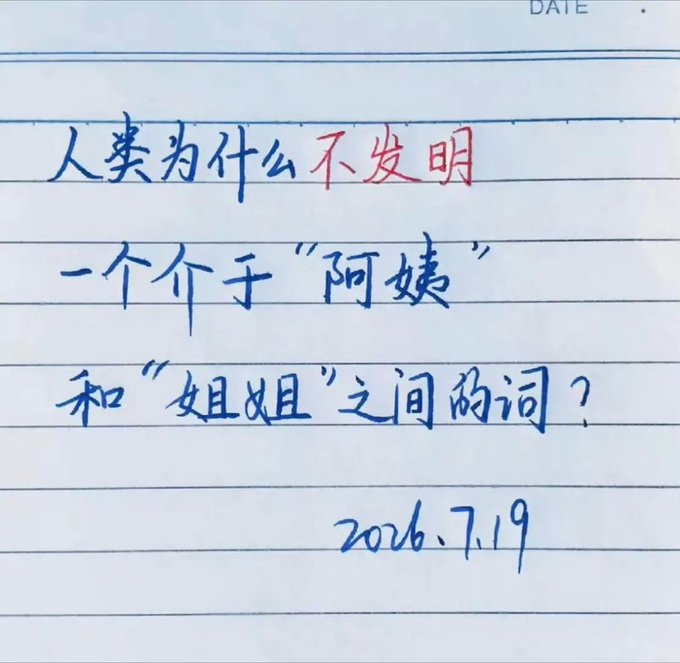 DATE .
人类为什么不发明
一个介于“阿姨”
和“姐姐”之间的词？
2026.7.19